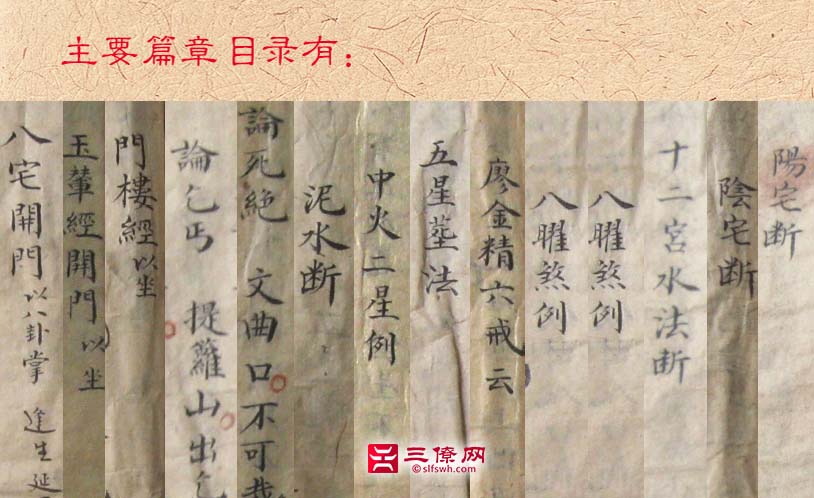 主要篇章目录有：
陽宅断
陰宅断
十二宮水法断
八曜煞例
八曜煞例
廖金精六戒云
五星塟法
中火二星例
泥水断
論死絶 文曲口不可
論乞丐 提籮山出乞
門樓經以坐
玉輦經開門以坐
八宅開門以八卦掌 進生延
三僚网
©slfswh.com